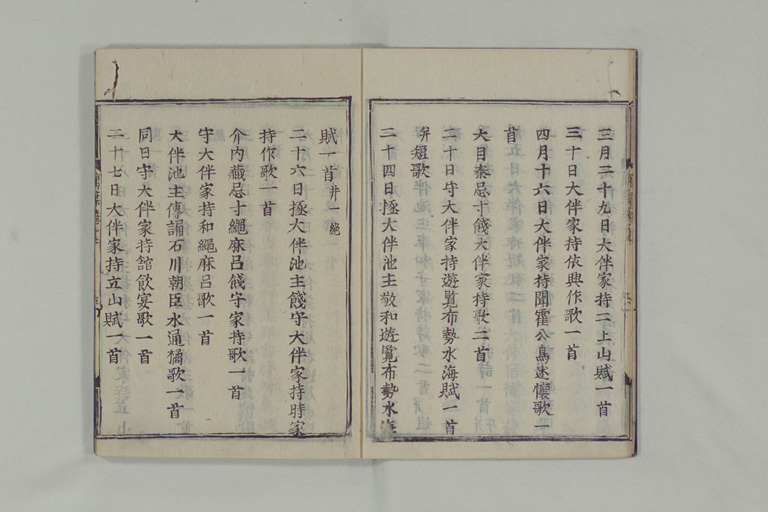 三月二十九日大伴家持二上山賦一首
三十日大伴家持依興作歌一首
四月十六日大伴家持聞霍公鳥述懷歌一
首
大目秦忌寸餞大伴家持歌二首
二十日守大伴家持遊覧布勢水海賦一首
并短歌
二十四日掾大伴池主敬和遊覧布勢水海
賦一首并一絶
二十六日掾大伴池主餞守大伴家持時家
持作歌一首
介内藏忌寸繩麻呂餞守家持歌一首
守大伴家持和繩麻呂歌一首
大伴池主傳誦石川朝臣水通橘歌一首
同日守大伴家持舘飲宴歌一首
二十七日大伴家持立山賦一首